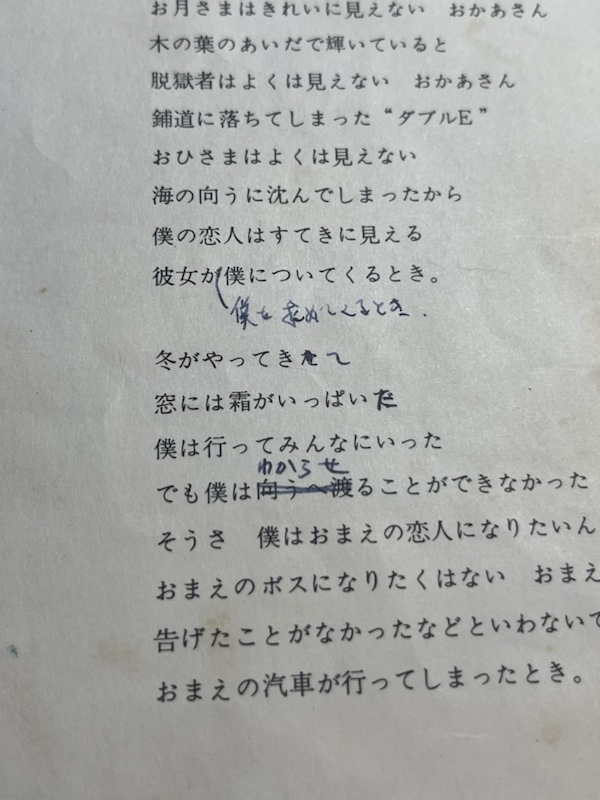 お月さまはきれいに見えない　おかあさん
木の葉のあいだで輝いていると
脱獄者はよくは見えない　おかあさん
鋪道に落ちてしまった“ダブルE”
おひさまはよくは見えない
海の向うに沈んでしまったから
僕の恋人はすてきに見える
彼女が僕についてくるとき。
僕を求めてくるとき.
冬がやってきて
窓には霜がいっぱいだ
僕は行ってみんなにいった
わからせ
でも僕は向うへ渡ることができなかった
そうさ　僕はおまえの恋人になりたいん
おまえのボスになりたくはない　おまえ
告げたことがなかったなどといわないで
おまえの汽車が行ってしまったとき。